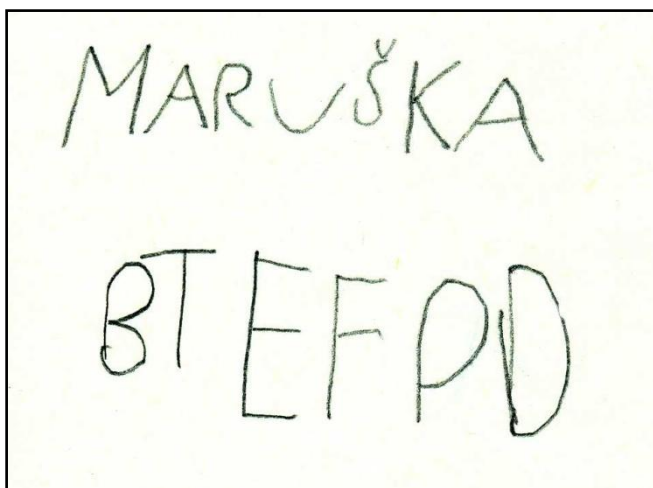 MARUŠKA
BTEFPD